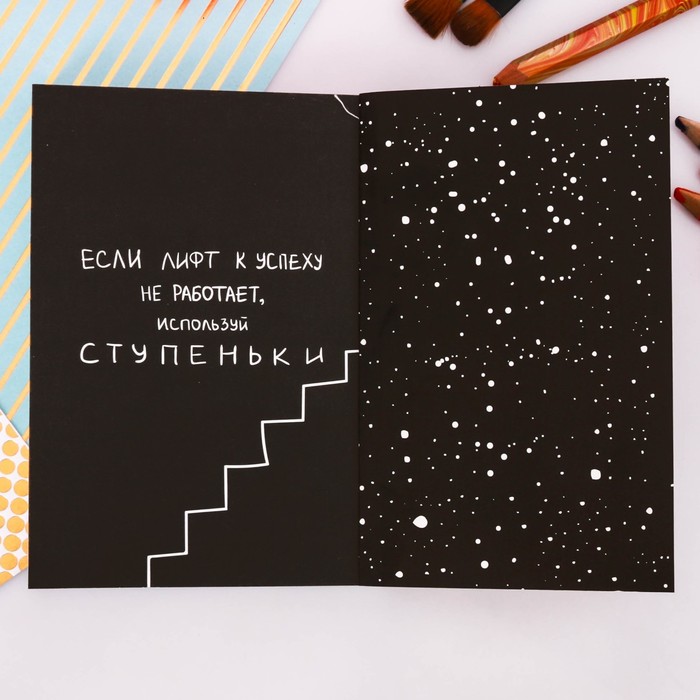 ЕСЛИ ЛИФТ К УСПЕХУ
НЕ РАБОТАЕТ,
ИСПОЛЬЗУЙ
СТУПЕНЬКИ